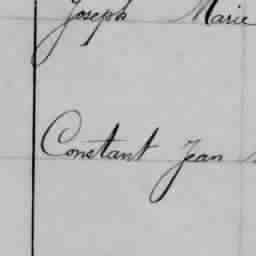 Joseph Marie
Constant Jean